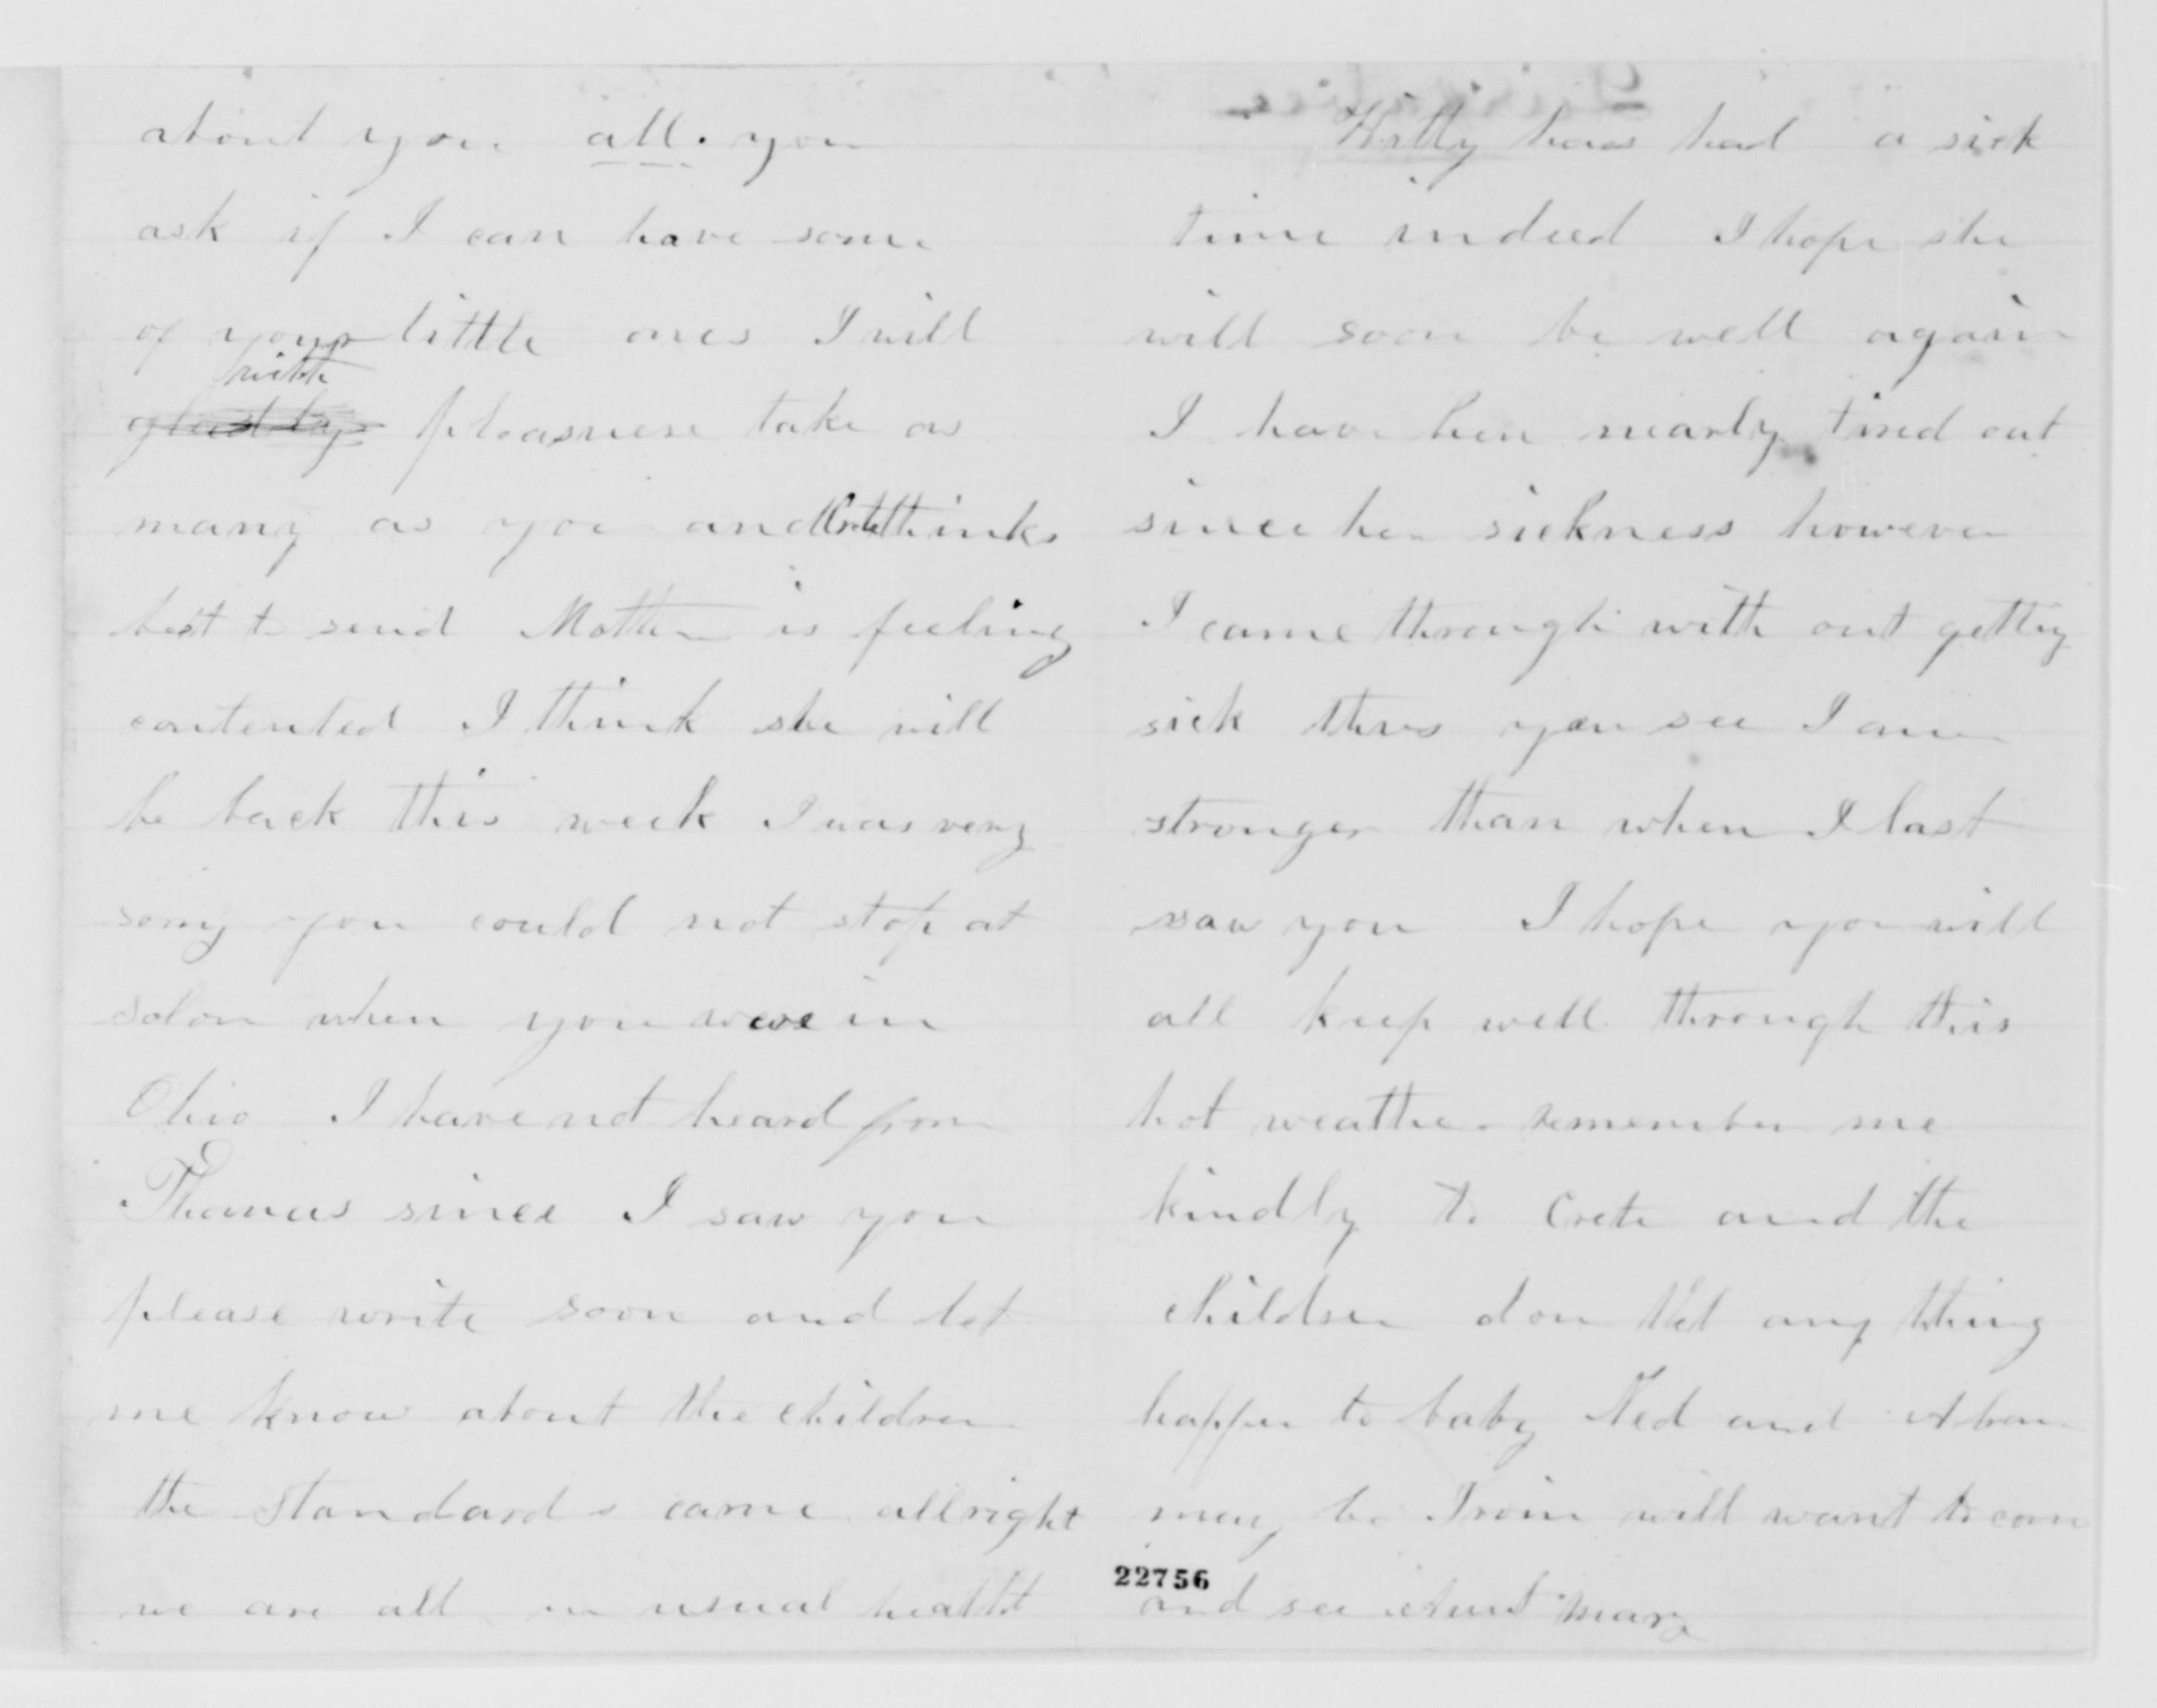 about you all. you
ask if I can have some
of your little ones I will
with
gladly pleasuere take as
many as you and Crete thinks
best to send Mother is feeling
contented I think she will
be back this week I was very
sorry you could not stop at
solon when you were in
Ohio I have not heard from
Thomas since I saw you
please write soon and let
me know about the children
the standards came allright
we are all in usual health
Hitty has had a sick
time indeed I hope she
will soon be well again
I have ben nearly tired out
since her sickness however
I came through with out getting
sick thus you see I am
stronger than when I last
saw you I hope you will
all keep well through this
hot weather remember me
kindly to Crete and the
children don tlet any thing
happen to baby Ned and Abram
may be Irvin will want to com
22756
and see Aunt Mary